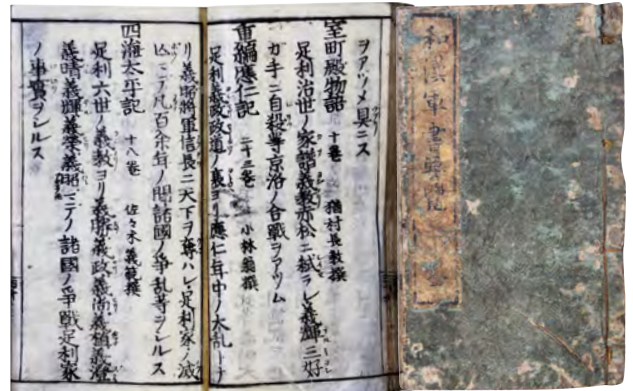 和漢軍書要覧
ヲアツメ具ニス
室町殿物語 十巻 楢村長教撰
足利治世ノ家譜義教赤松ニ弑ラレ義輝三好
ガ手ニ自殺等京洛ノ合戰ヲアツム
重編應仁記 二十三巻 小林翁撰
足利義政政道ノ衰ヨリ應仁年中ノ大乱トナ
リ義昭將軍信長ニ天下ヲ奪ハレ足利家ノ滅
亡マテ凡百余年ノ間諸國ノ爭乱等ヲシルス
四海太平記 十八巻 佐々木義範撰
足利六世ノ義教ヨリ義勝義政義尚義稙義澄
義晴義輝義榮義昭マテノ諸國ノ爭戰足利家
ノ事實ヲシルス